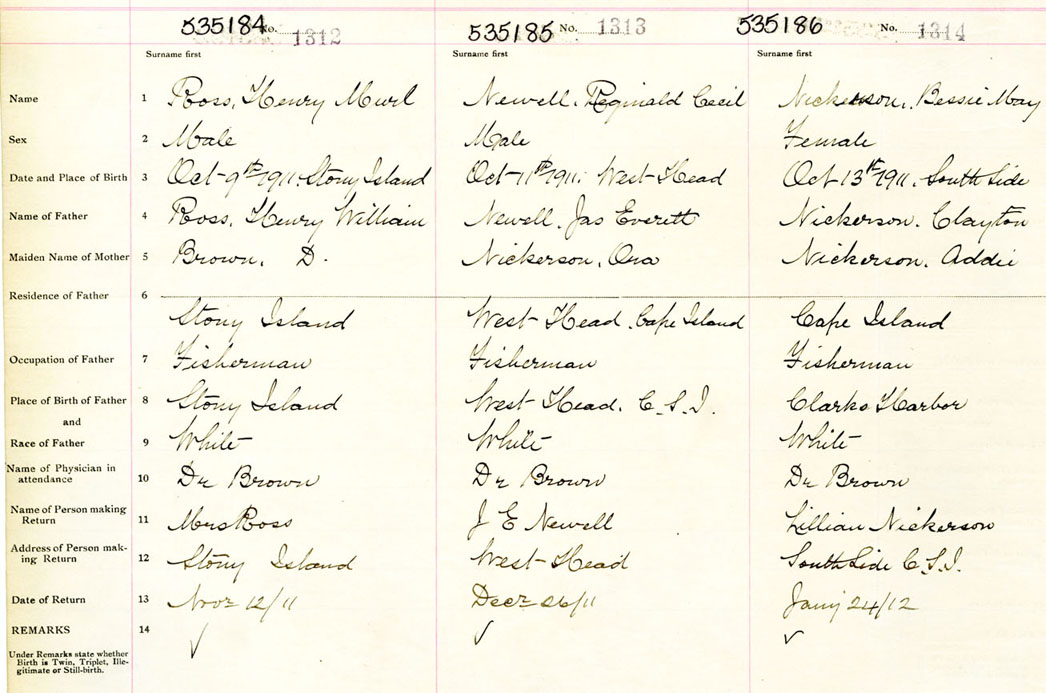 535184 No. 1312 535185 No. 1313 535186 No. 1314
Surname first Surname first Surname first
Name 1 Ross, Henry Murl Newell, Reginald Cecil Nickerson, Bessie May
Sex 2 Male Male Female
Date and Place of Birth 3 Oct 9th 1911. Stony Island Oct 11th 1911. West Head Oct 13th 1911. South Side
Name of Father 4 Ross, Henry William Newell, Jas Everett Nickerson, Clayton
Maiden Name of Mother 5 Brown, D. Nickerson, Ora Nickerson, Addie
Residence of Father 6
Stony Island West Head, Cape Island Cape Island
Occupation of Father 7 Fisherman Fisherman Fisherman
Place of Birth of Father 8 Stony Island West Head. C.S.I. Clarks Harbor
and
Race of Father 9 White White White
Name of Physician in
attendance 10 Dr Brown Dr Brown Dr Brown
Name of Person making
Return 11 Mrs Ross J E Newell Lillian Nickerson
Address of Person mak-
ing Return 12 Stony Island West Head South Side C.S.I.
Date of Return 13 Novr 12/11 Decr 26/11 Jany 24/12
REMARKS 14 ✓ ✓ ✓
Under Remarks state whether
Birth is Twin, Triplet, Ille-
gitimate or Still-birth.